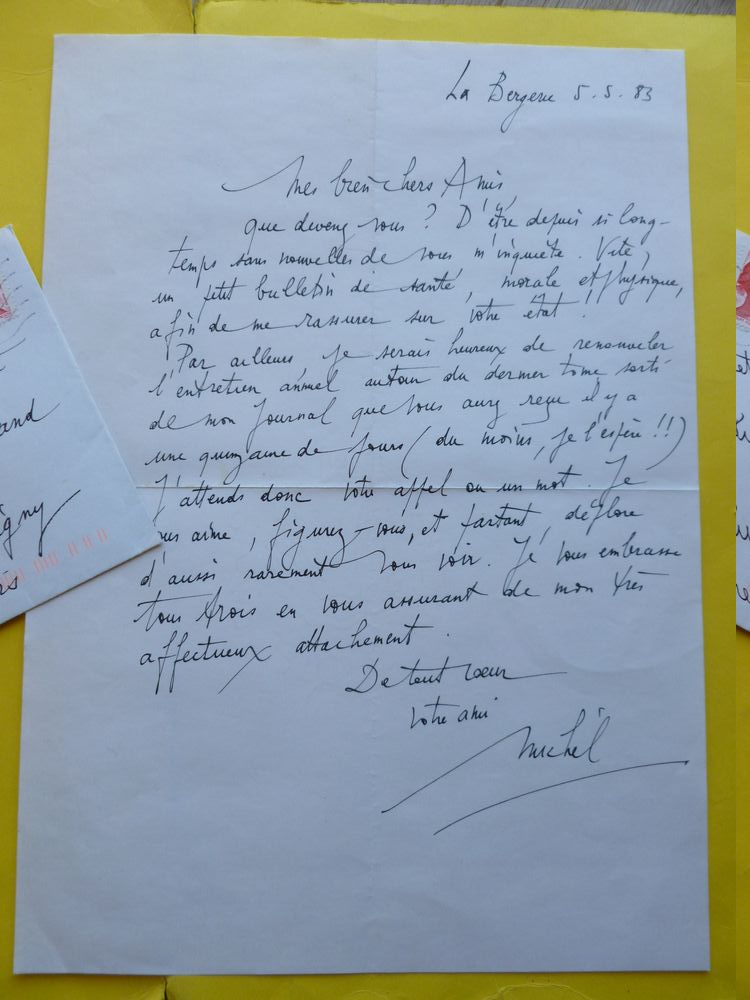 La Bergerie 5.5.83
Mes bien chers Amis
que devenez vous ? D'être depuis si long-
temps sans nouvelles de vous m'inquiète. Vite,
un petit bulletin de santé, morale et physique,
afin de me rassurer sur votre état !
Par ailleurs je serais heureux de renouveler
l'entretien annuel autour du dernier tome sorti
de mon Journal que vous avez reçu il y a
une quinzaine de jours (du moins, je l'espère !!)
J'attends donc votre appel ou un mot. Je
vous aime, figurez-vous, et partant, déplore
d'aussi rarement vous voir. Je vous embrasse
tous trois en vous assurant de mon très
affectueux attachement.
De tout cœur
votre ami
Michel
and
igny